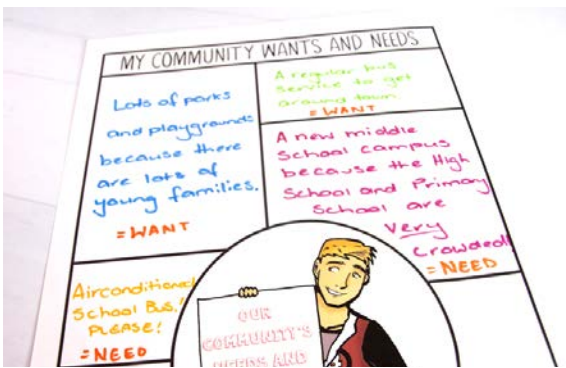 MY COMMUNITY WANTS AND NEEDS
Lots of parks
and playgrounds
because there
are lots of
young families.
=WANT
A regular bus
service to get
around town.
=WANT
A new middle
School campus
because the High
School and Primary
School are
Very
Crowded!!
=NEED
Airconditioned
School Bus!
PLEASE!
=NEED
OUR
COMMUNITY'S
NEEDS AND